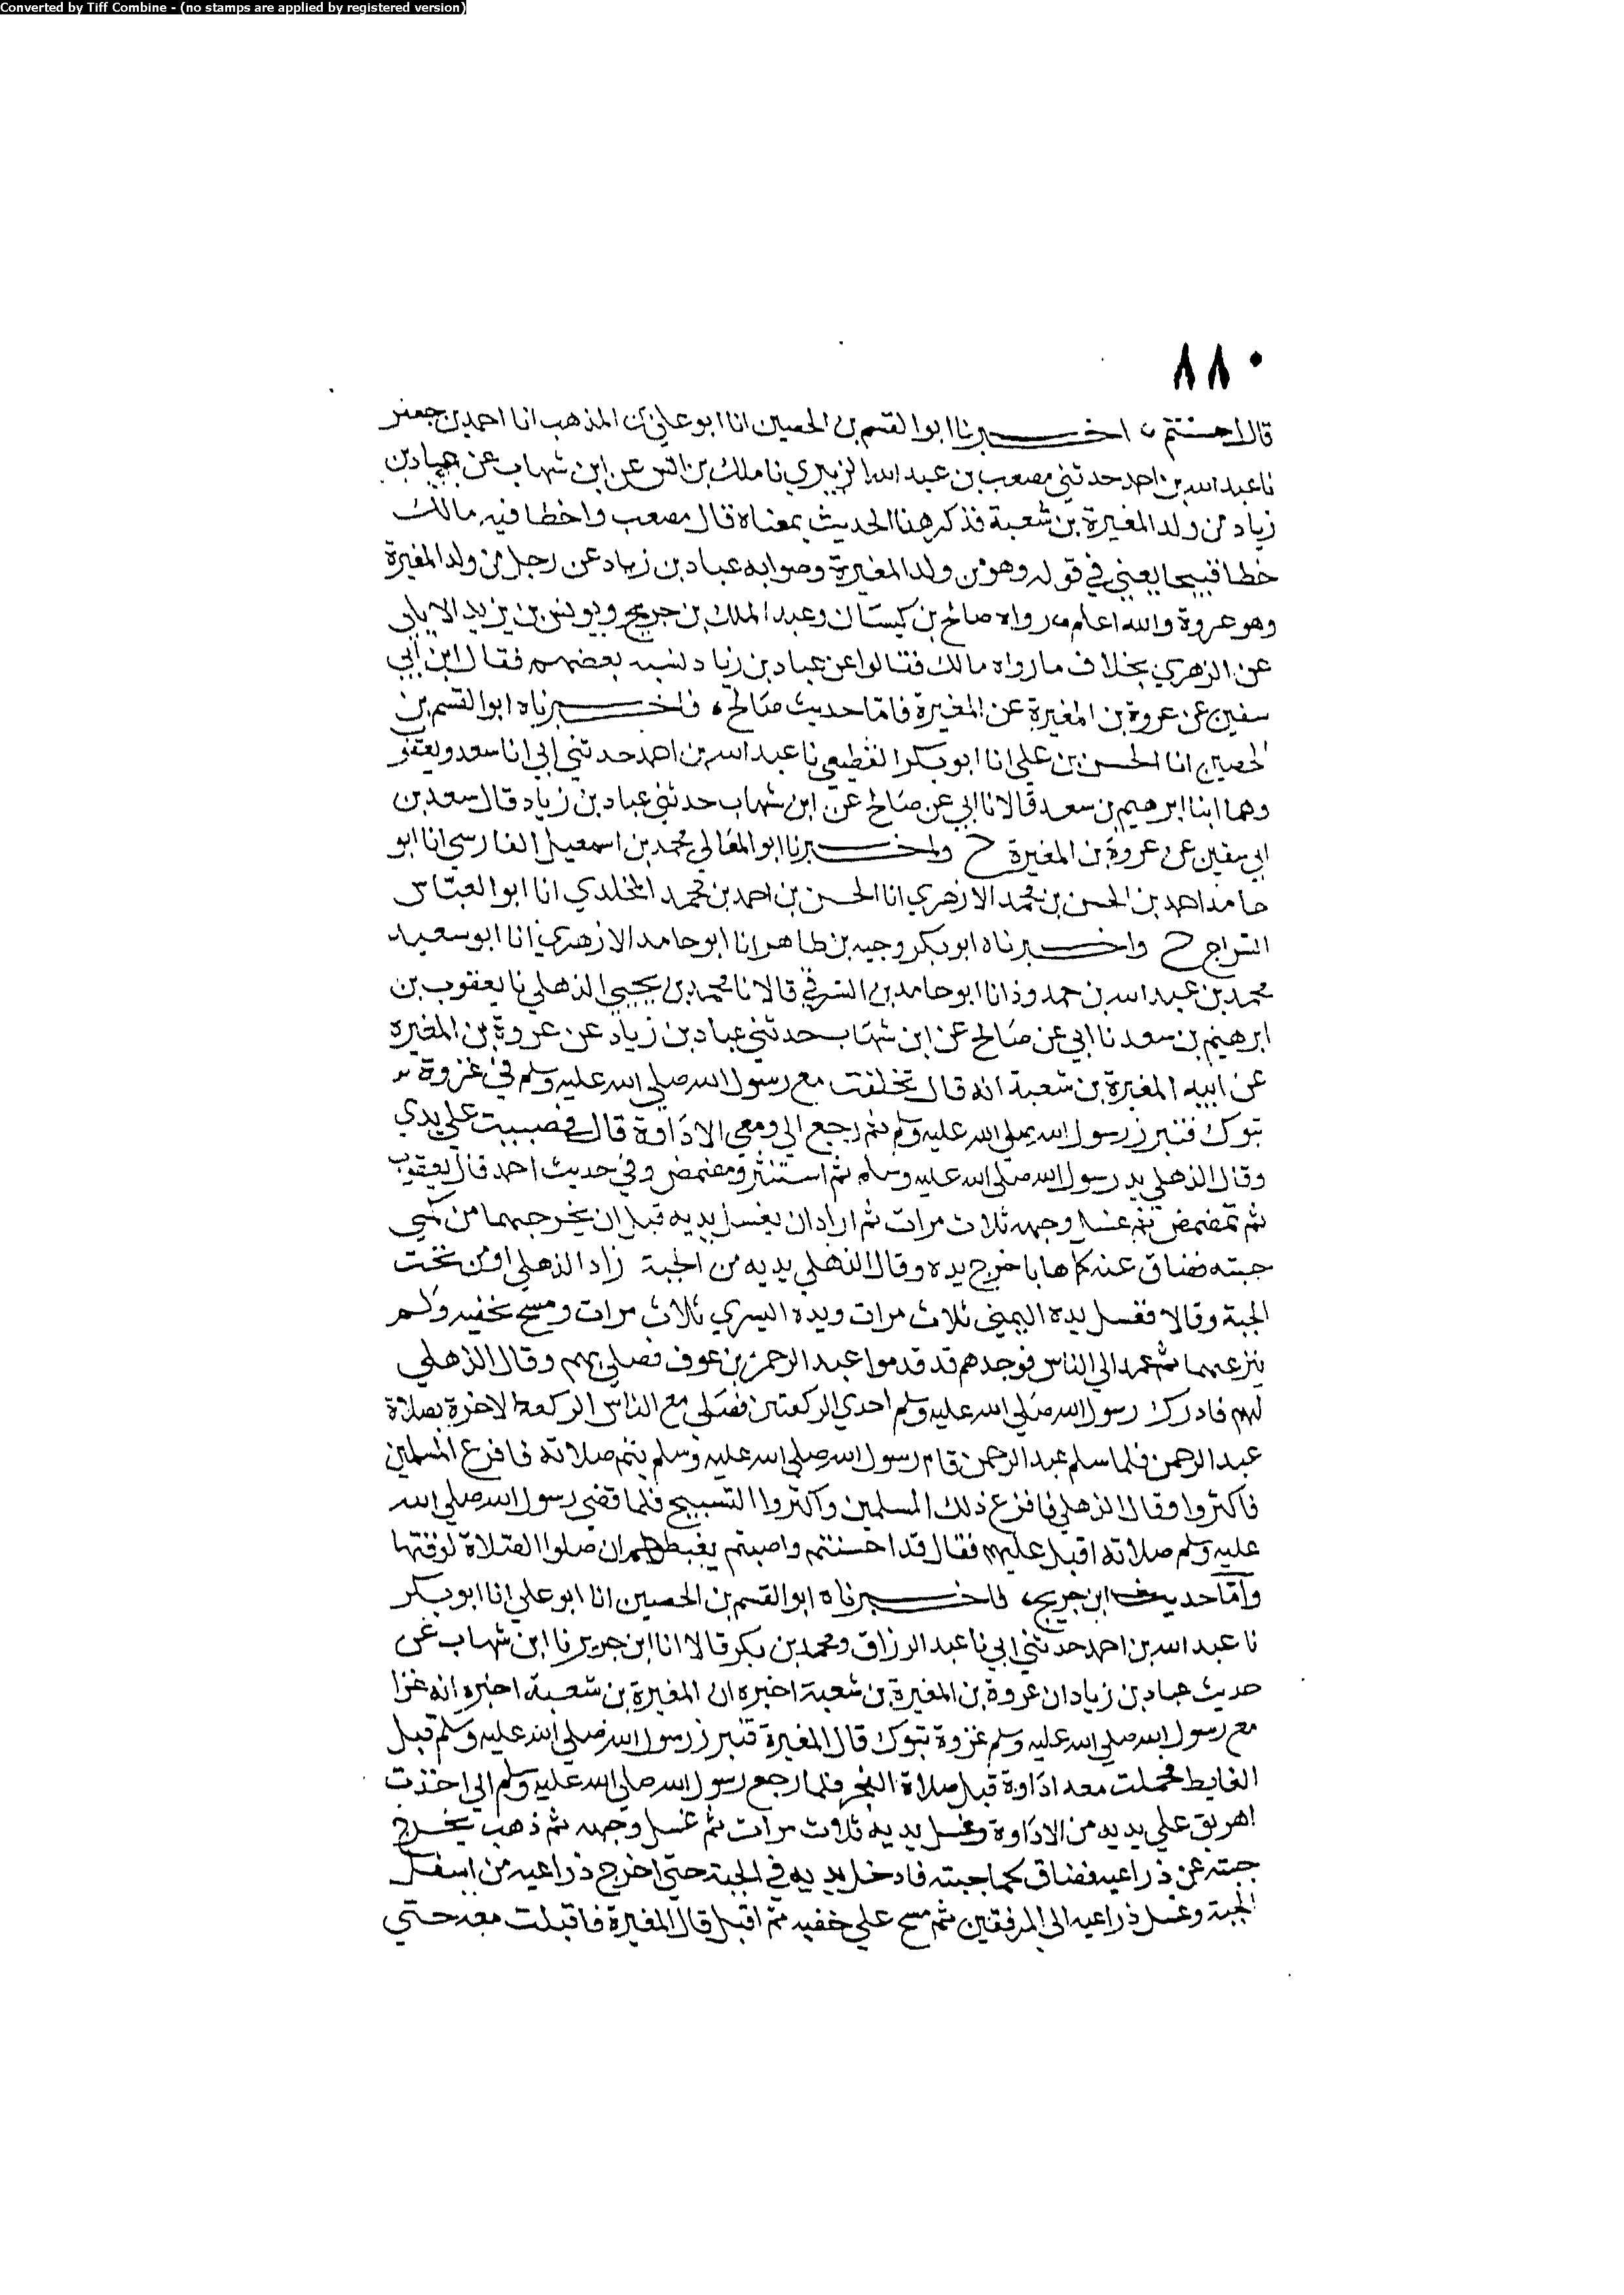 Converted by Tiff Combine - (no stamps are applied by registered version)
٨٨٠
قال احسنتم اخبرنا ابو القسم بن الحصين انا ابو علي بن المذهب انا احمد بن جعفر
نا عبد الله بن احمد حدثني مصعب بن عبد الله الزبيري نا ملك بن انس عن ابن شهاب عن عباد بن
زياد من ولد المغيرة بن شعبة فذكر هذا الحديث بمعناه قال مصعب واخطا فيه مالك
خطا قبيحا يعني في قوله وهو من ولد المغيرة وصوابه عباد بن زياد عن رجل من ولد المغيرة
وهو عروة والله اعلم رواه صالح بن كيسان وعبد الملك بن جريج ويونس بن يزيد الايلي
عن الزهري بخلاف ما رواه مالك فقالوا عن عباد بن زياد نسبه بعضهم فقال ابن ابي
سفين عن عروة بن المغيرة عن المغيرة فاما حديث صالح فاخبرناه ابو القسم بن
الحصين انا الحسن بن علي انا ابو بكر القطيعي نا عبد الله بن احمد حدثني ابي انا سعد ويعقوب
وهما ابنا ابرهيم بن سعد قالا نا ابي عن صالح عن ابن شهاب حدثني عباد بن زياد قال سعد بن
ابي سفين عن عروة بن المغيرة ح واخبرنا ابو المعالي محمد بن اسمعيل الفارسي انا ابو
حامد احمد بن الحسن بن محمد الازهري انا الحسن بن احمد بن محمد المخلدي انا ابو العباس
السراج ح واخبرناه ابو بكر وجيه بن طاهر انا ابو حامد الازهري انا ابو سعيد
محمد بن عبد الله بن حمدون انا ابو حامد بن الشرقي قالا نا محمد بن يحيي الذهلي نا يعقوب بن
ابرهيم بن سعد نا ابي عن صالح عن ابن شهاب حدثني عباد بن زياد عن عروة بن المغيرة
عن ابيه المغيرة بن شعبة انه قال تخلفت مع رسول الله صلي الله عليه وسلم في غزوة
تبوك فتبرز رسول الله صلي الله عليه وسلم ثم رجع الي ومعي الاداوة قال فصببت علي يدي
وقال الذهلي يد رسول الله صلي الله عليه وسلم ثم استنثر ومضمض وفي حديث احمد قال يعقوب
ثم تمضمض ثم غسل وجهه ثلاث مرات ثم اراد ان يغسل يديه قبل ان يخرجهما من كمي
جبته فضاق عنه كماها فاخرج يده وقال الذهلي يديه من الجبة زاد الذهلي او من تحت
الجبة وقالا فغسل يده اليمني ثلاث مرات ويده اليسري ثلاث مرات ومسح بخفيه ولم
ينزعهما ثم عمد الي الناس فوجدهم قد قدموا عبد الرحمن بن عوف فصلي بهم وقال الذهلي
لهم فادرك رسول الله صلي الله عليه وسلم احدي الركعتين فصلي مع الناس الركعة الاخرة بصلاة
عبد الرحمن فلما سلم عبد الرحمن قام رسول الله صلي الله عليه وسلم يتم صلاته فافزع المسلمين
فاكثروا وقال الذهلي فافزع ذلك المسلمين واكثروا التسبيح فلما قضي رسول الله صلي الله
عليه وسلم صلاته اقبل عليهم فقال قد احسنتم واصبتم يغبطهم ان صلوا الصلاة لوقتها
واما حديث ابن جريج فاخبرناه ابو القسم بن الحصين انا ابو علي انا ابو بكر
نا عبد الله بن احمد حدثني ابي نا عبد الرزاق ومحمد بن بكر قالا انا ابن جرير نا ابن شهاب عن
حديث عباد بن زياد ان عروة بن المغيرة بن شعبة اخبره ان المغيرة بن شعبة اخبره انه غزا
مع رسول الله صلي الله عليه وسلم غزوة تبوك قال المغيرة فتبرز رسول الله صلي الله عليه وسلم قبل
الغايط فحملت معه اداوة قبل صلاة الفجر فلما رجع رسول الله صلي الله عليه وسلم الي اخذت
اهريق علي يديه من الاداوة وغسل يديه ثلاث مرات ثم غسل وجهه ثم ذهب يخرج
جبته عن ذراعيه فضاق كما جبته فادخل يديه في الجبة حتي اخرج ذراعيه من اسفل
الجبة وغسل ذراعيه الي المرفقين ثم مسح علي خفيه ثم اقبل قال المغيرة فاقبلت معه حتي